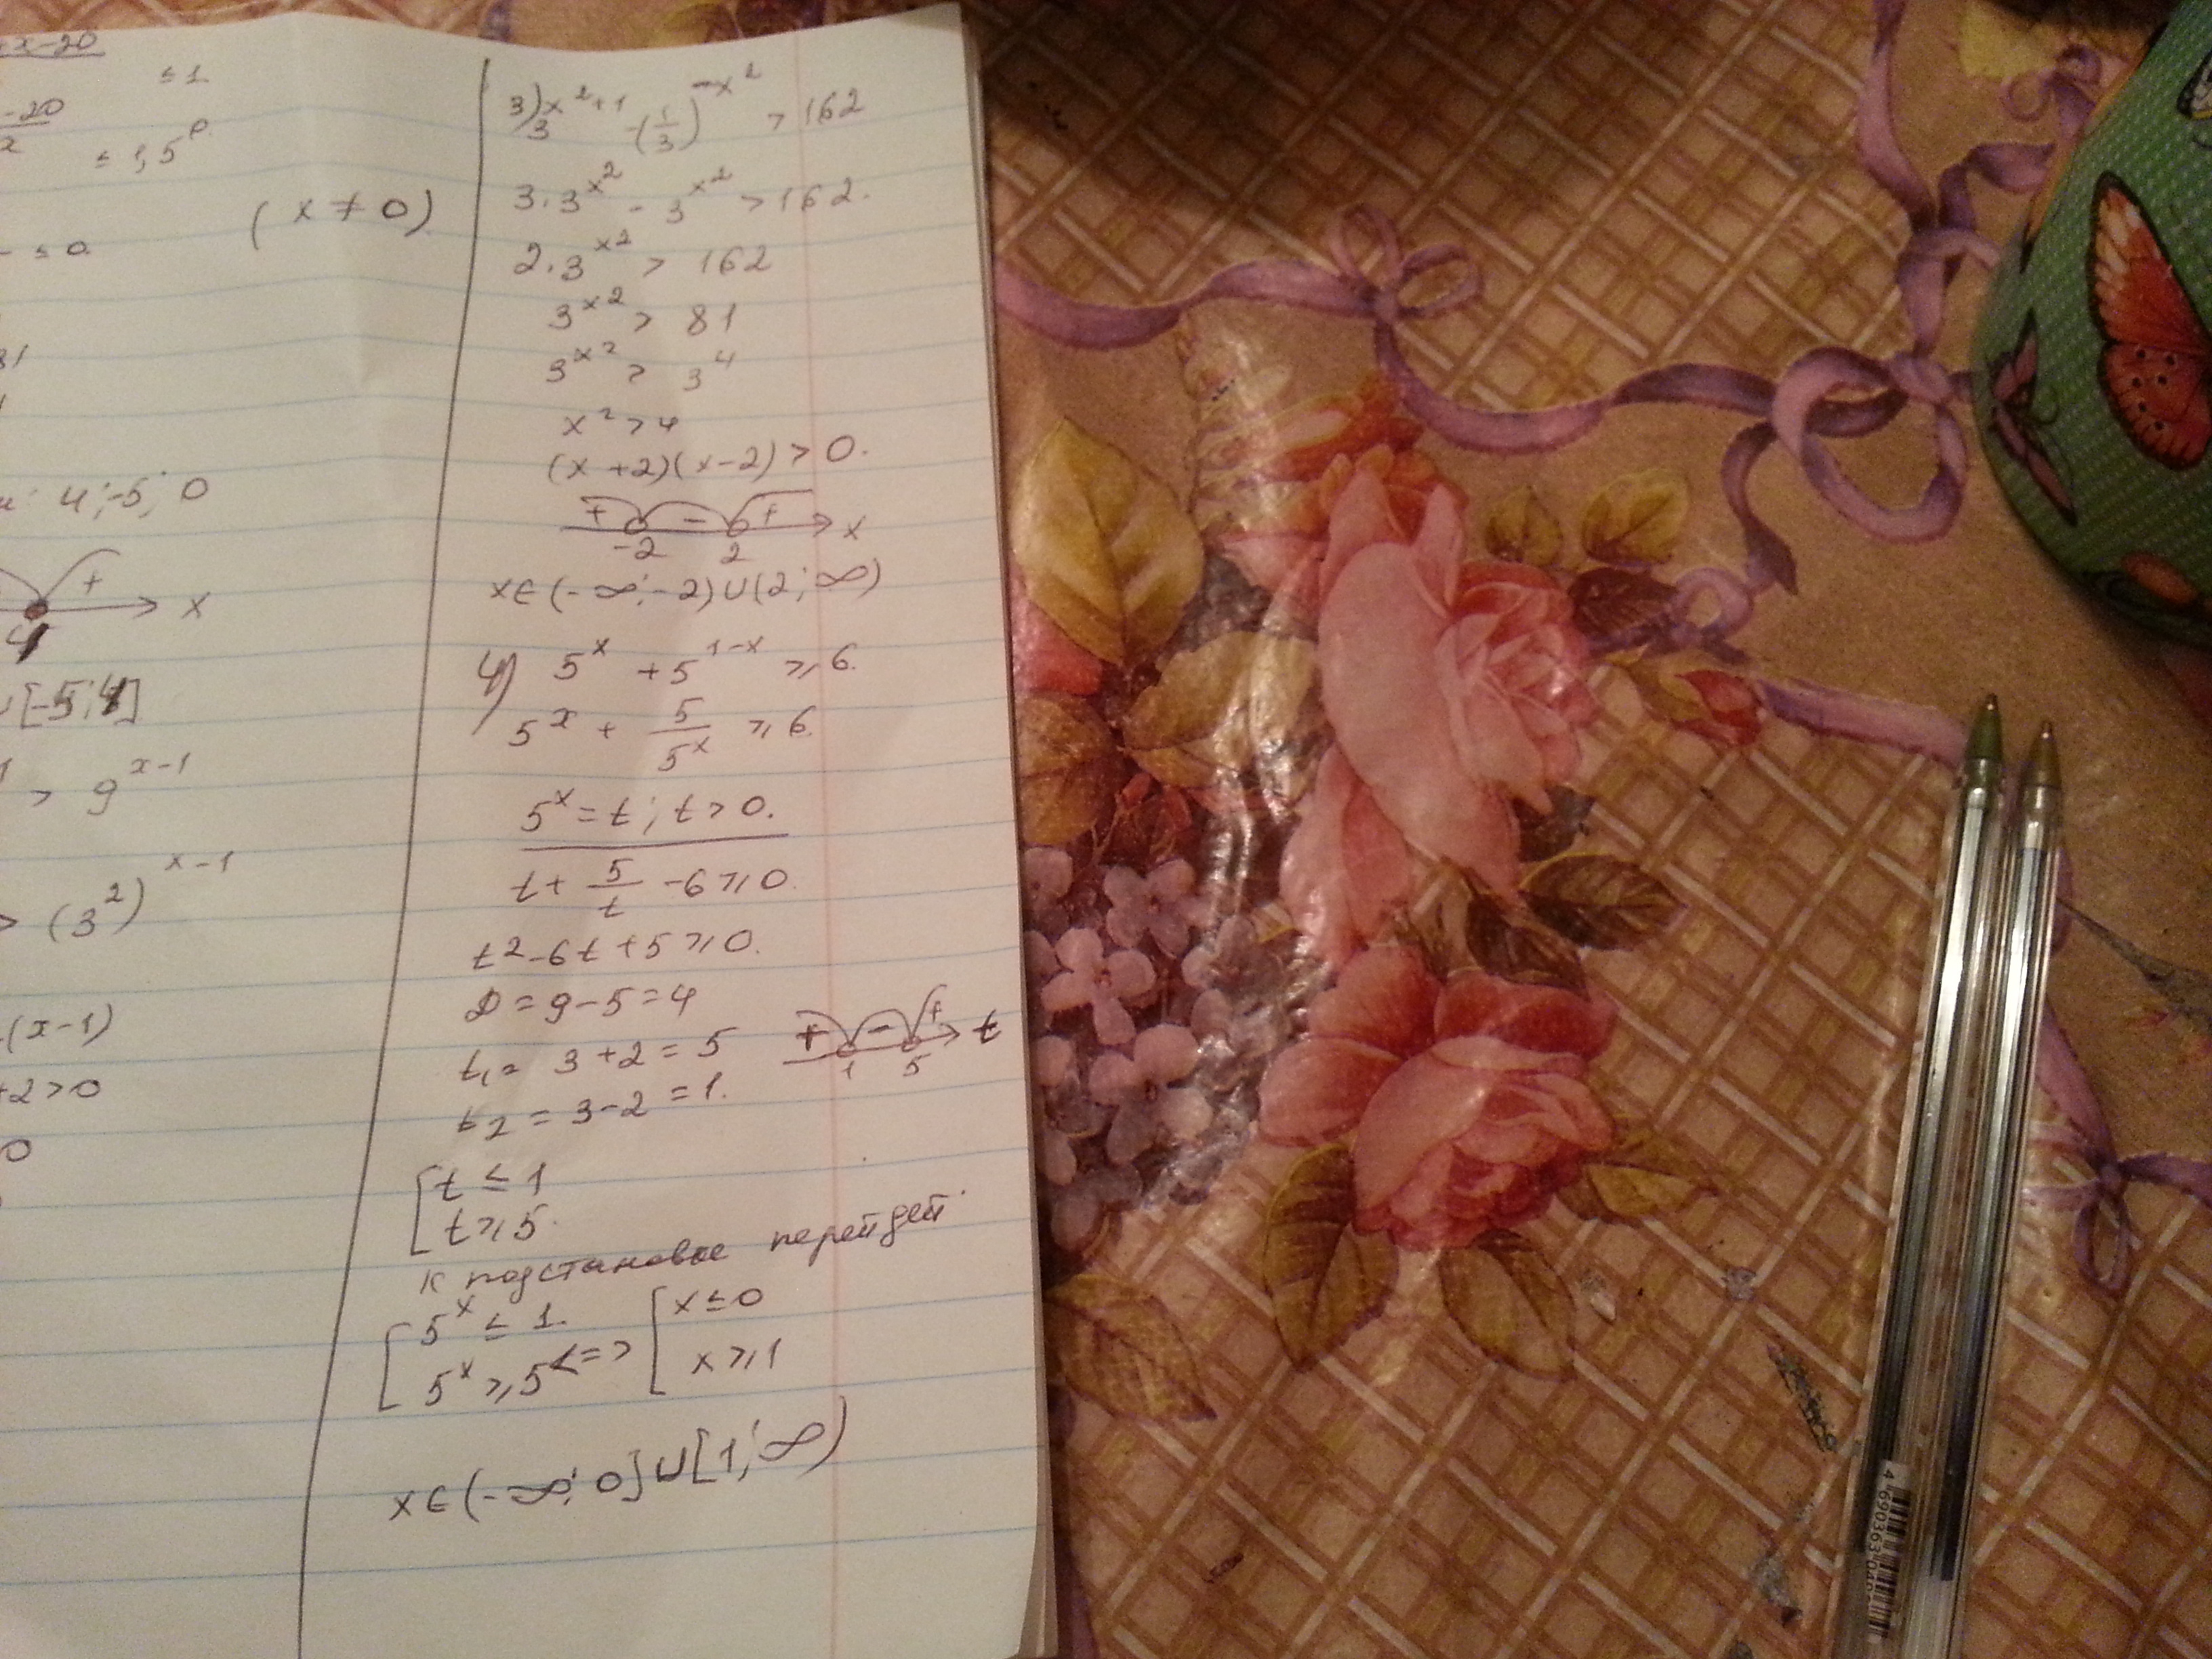 +x-20
≤ 1
-20
x
≤ 1,5⁰
(x ≠ 0)
≤ 0.
81
4; -5; 0
+
x
4
∪[-5; 4]
> 9^(x-1)
> (3²)^(x-1)
(x-1)
+2 > 0
0
3) 3^(x²+1) - (1/3)^(-x²) > 162
3·3^(x²) - 3^(x²) > 162.
2·3^(x²) > 162
3^(x²) > 81
3^(x²) > 3⁴
x² > 4
(x+2)(x-2) > 0.
+ - + x
-2 2
x∈(-∞; -2)∪(2; ∞)
4) 5^x + 5^(1-x) ≥ 6.
5^x + 5/5^x ≥ 6.
5^x = t; t > 0.
t + 5/t - 6 ≥ 0.
t² - 6t + 5 ≥ 0.
D = 9 - 5 = 4
t₁ = 3 + 2 = 5
t₂ = 3 - 2 = 1.
+ - + t
1 5
[ t ≤ 1
t ≥ 5.
к подстановке перейдем
[ 5^x ≤ 1.
5^x ≥ 5 <=> [ x ≤ 0
x ≥ 1
x∈(-∞; 0]∪[1; ∞)